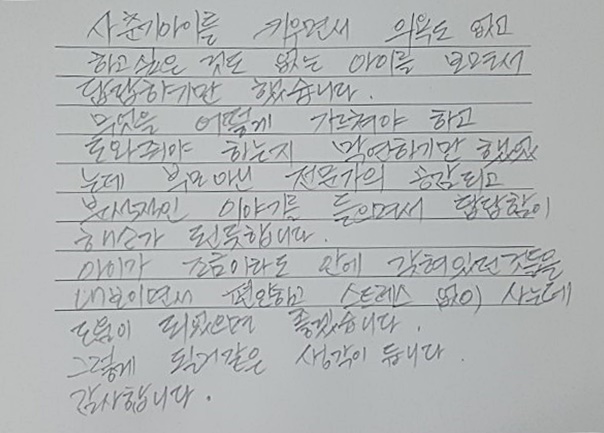 사춘기아이를 키우면서 의욕도 없고
하고싶은 것도 없는 아이를 보면서
답답하기만 했습니다.
무엇을 어떻게 가르쳐야 하고
도와줘야 하는지 막연하기만 했었
는데 부모아닌 전문가의 공감되고
이야기를 들으면서 답답함이
해소가 된듯합니다.
아이가 조금이라도 안에 갇혀있던것들을
내보이면서 편안하고 스트레스 없이 사는데
도움이 되었으면 좋겠습니다.
그렇게 될거같은 생각이 듭니다.
감사합니다.